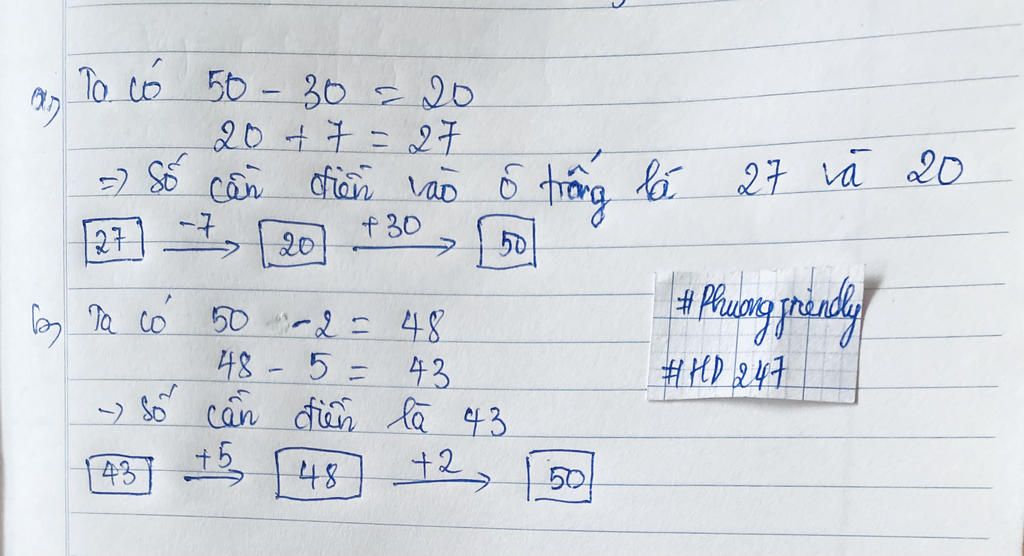 a,) Ta có 50 - 30 = 20
20 + 7 = 27
=> Số cần điền vào ô trống là 27 và 20
27 -7 → 20 +30 → 50
b,) Ta có 50 - 2 = 48
48 - 5 = 43
→ Số cần điền là 43
43 +5 → 48 +2 → 50
#Phuongfriendly
#HD247